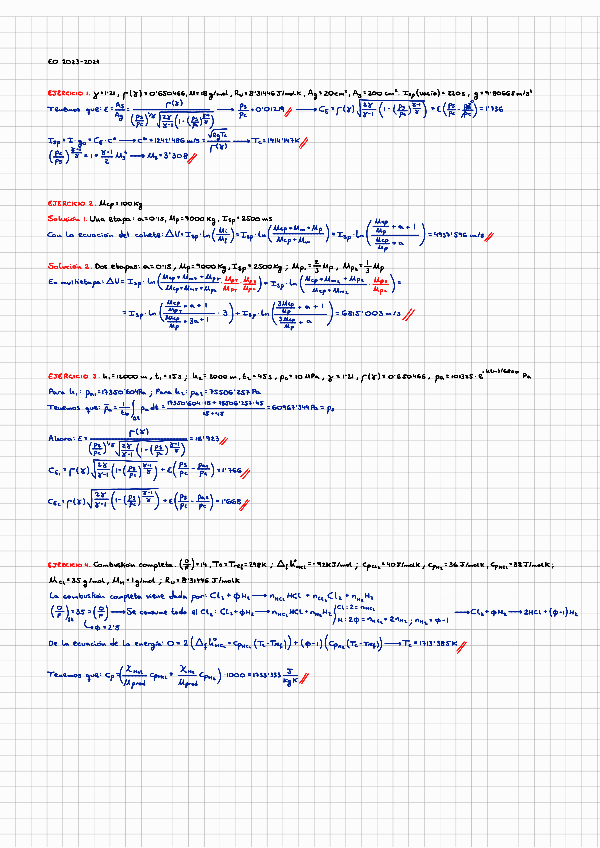 EO 2023-2024
EJERCICIO 1. γ=1'21, Γ(γ)=0'650466, M=18g/mol, Ru=8'31446 J/molK, Ag=20cm², As=200cm². Isp(vacio)=320s, g=9'80665m/s²
Tenemos que: ε = As/Ag = Γ(γ) / ((ps/pc)^(1/γ) √(2γ/(γ-1) (1-(ps/pc)^((γ-1)/γ)))) → ps/pc = 0'01219 // → CE = Γ(γ) √(2γ/(γ-1) (1-(ps/pc)^((γ-1)/γ))) + ε(ps/pc - pa/pc) = 1'756
Isp = I g0 = CE · c* → c* = m/s = √(RgTc)/Γ(γ) → Tc = 1914'147K //
(pc/ps)^((γ-1)/γ) = 1 + (γ-1)/2 Ms² → Ms = 3'308 //
EJERCICIO 2. Mcp=100Kg
Solución 1. Una etapa: a=0'15, Mp=9000Kg, Isp=2500 m/s
Con la ecuación del cohete: ΔV = Isp·ln(Mi/Mf) = Isp·ln((Mcp+Mm+Mp)/(Mcp+Mm)) = Isp·ln((Mcp/Mp + a + 1)/(Mcp/Mp + a)) = m/s //
Solución 2. Dos etapas: a=0'15, Mp=9000Kg, Isp=2500Kg; Mp1 = 2/3 Mp, Mp2 = 1/3 Mp
En multietapa: ΔV = Isp·ln( · ) + Isp·ln( · ) =
= Isp·ln( · 3) + Isp·ln((3Mcp/Mp + a + 1)/(3Mcp/Mp + a)) = 6815'003 m/s //
EJERCICIO 3. h1=12000 m, t1=15s; h2= m, t2=45s, pc=10MPa, γ=1'21, Γ(γ)=0'650466, pa=101325·e Pa
Para h1: pa1= Pa; Para h2: pa2= Pa
Tenemos que: p̄a = 1/tb ∫ pa dt = = Pa = ps
Ahora: ε = Γ(γ) / ((ps/pc)^(1/γ) √(2γ/(γ-1) (1-(ps/pc)^((γ-1)/γ)))) = 18'923 //
CE1 = Γ(γ) √(2γ/(γ-1) (1-(ps/pc)^((γ-1)/γ))) + ε(ps/pc - pa1/pc) = 1'766 //
CE2 = Γ(γ) √(2γ/(γ-1) (1-(ps/pc)^((γ-1)/γ))) + ε(ps/pc - pa2/pc) = 1'668 //
EJERCICIO 4. Combustión completa. (O/F)=14, T0=Tref=298K; Δfh°HCl=-92KJ/mol; cpCl2=40J/molK, cpHCl=36 J/molK, cpH2=32J/molK;
MCl=35g/mol, MH=1g/mol; Ru=8'31446 J/molK
La combustión completa viene dada por: Cl2 + ϕH2 → nHCl HCl + nCl2 Cl2 + nH2 H2
(O/F)st = 35 = (O/F)ϕ → Se consume todo el Cl2: Cl2 + ϕH2 → nHCl HCl + nH2 H2 / Cl: 2 = nHCl / H: 2ϕ = nHCl + 2nH2; nH2 = ϕ-1 → Cl2 + ϕH2 → 2HCl + (ϕ-1)H2
↳ ϕ=2'5
De la ecuación de la energía: 0 = 2(Δfh°HCl + cpHCl(Tc-Tref)) + (ϕ-1)(cpH2(Tc-Tref)) → Tc = 1713'385K //
Tenemos que: cp = (XHCl/Mprod cpHCl + XH2/Mprod cpH2)·1000 = 1733'333 J/KgK //